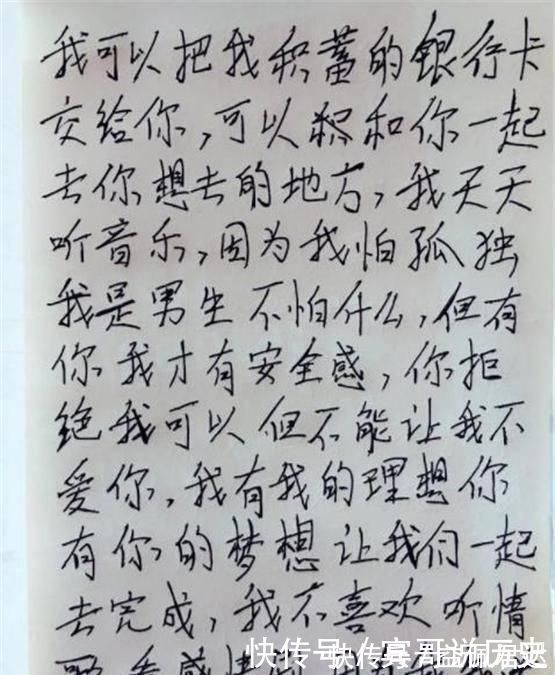 我可以把我积蓄的银行卡
交给你,可以积和你一起
去你想去的地方,我天天
听音乐,因为我怕孤独
我是男生不怕什么,但有
你我才有安全感,你拒
绝我可以但不能让我不
爱你,我有我的理想你
有你的梦想让我们一起
去完成,我不喜欢听情
快传号/